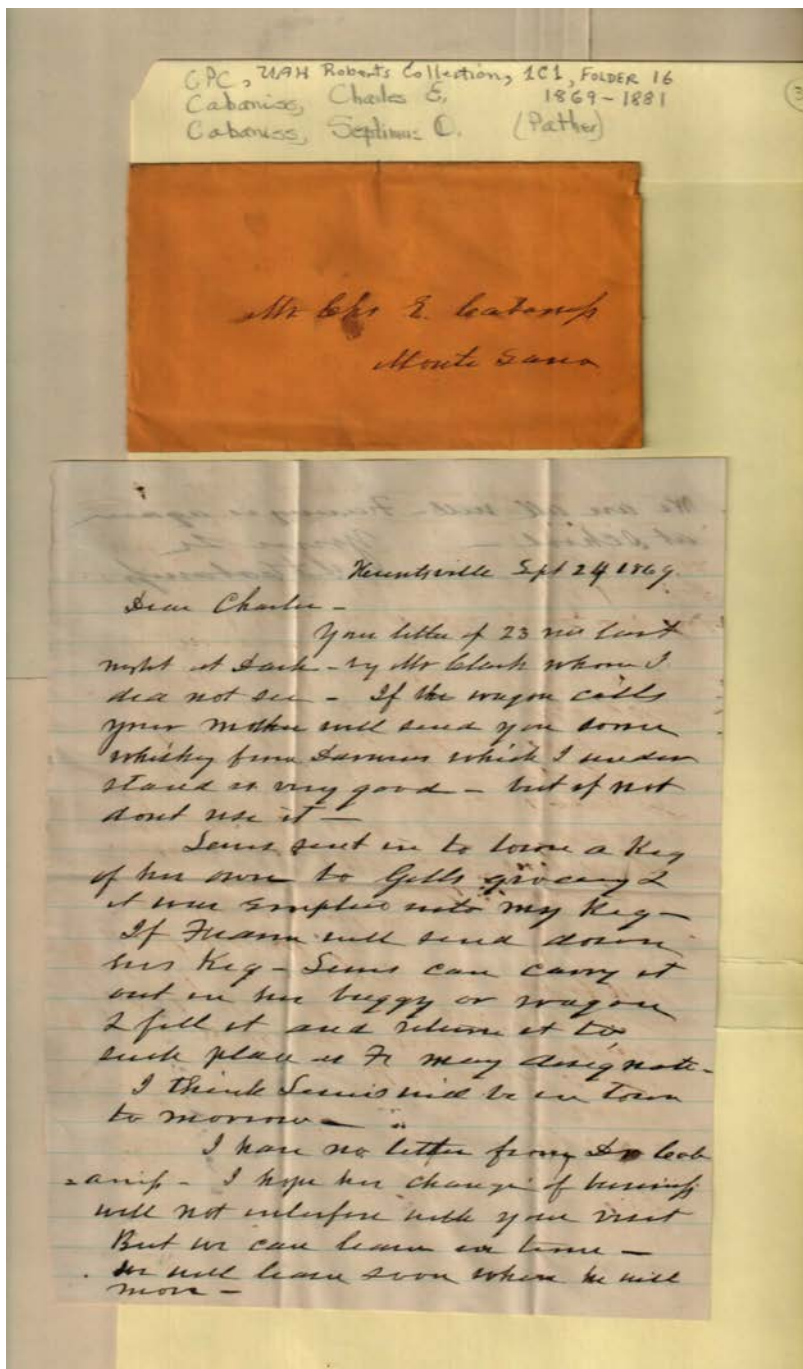 CPC, UAH Roberts Collection, 1C1, FOLDER 16
Cabaniss, Charles E. 1869-1881
Cabaniss, Septimus D. (Father)
3
Mr Chs E. Cabaniss
Monte Sano
We are all well - Fanny is again
at School -
Huntsville Sept 24 1869.
Dear Charlie -
Your letter of 23 rec last
night at Dark - by Mr Clark whom I
did not see - If the wagon calls
your mother will send you some
whiskey from which I under
stand is very good - but if not
dont use it -
Lewis sent in to town a Keg
of his own to Gills grocery &
it was emptied into my Keg -
If will send down
his Keg - Lewis can carry it
out in his buggy or wagon
& fill it and return it to
such place as Fr may designate -
I think Lewis will be in town
to morrow -
I have no letter from Dr Cab
=aniss - I hope his change of business
will not interfere with your visit
But we can learn in time -
we will learn soon where he will
move -